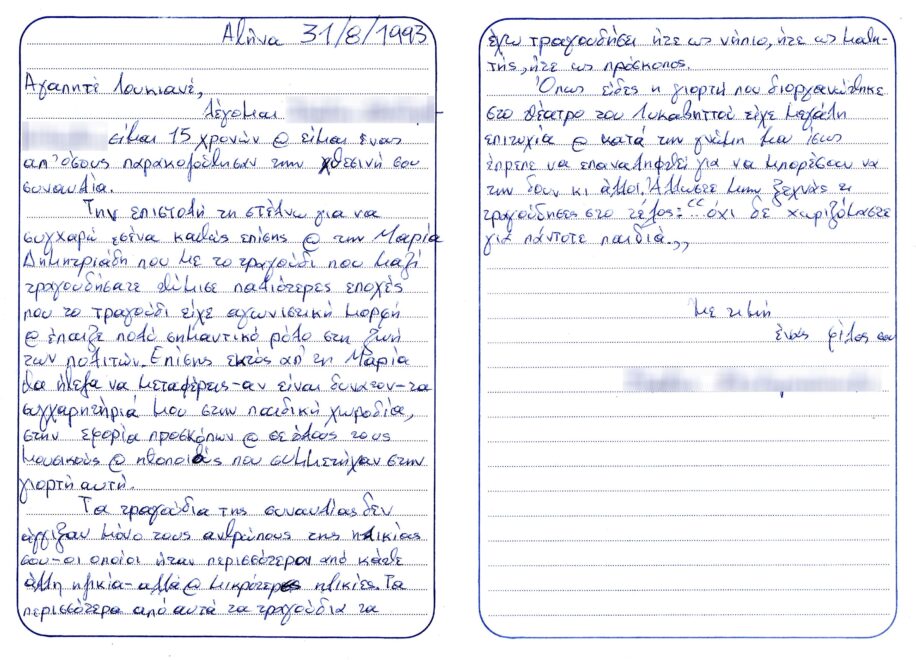 Αθήνα 31/8/1993
Αγαπητέ Λουκιανέ,
Λέγομαι
είμαι 15 χρονών @ είμαι ένας
απ' όσους παρακολούθησαν την χθεσινή σου
συναυλία.
Την επιστολή τη στέλνω για να
συγχαρώ εσένα καθώς επίσης @ την Μαρία
Δημητριάδη που με το τραγούδι που μαζί
τραγουδήσατε θύμισε παλιότερες εποχές
που το τραγούδι είχε αγωνιστική μορφή
@ έπαιζε πολύ σημαντικό ρόλο στη ζωή
των πολιτών. Επίσης εκτός απ' τη Μαρία
θα ήθελα να μεταφέρεις-αν είναι δυνατον-τα
συγχαρητήριά μου στην παιδική χωροδία,
στην εφορία προσκόπων @ σε όλους τους
μουσικούς @ ηθοποιούς που συμμετήχαν στην
γιορτή αυτή.
Τα τραγούδια της συναυλίας δεν
άγγιξαν μόνο τους ανθρώπους της ηλικίας
σου-οι οποίοι ήταν περισσότεροι από κάθε
άλλη ηλικία-αλλά @ μικρότερες ηλικίες. Τα
περισσότερα από αυτά τα τραγούδια τα
έχω τραγουδήσει ήτε ως νήπιο, ήτε ως μαθη-
τής, ήτε ως πρόσκοπος.
Όπως είδες η γιορτή που διοργανώθηκε
στο θέατρο του Λυκαβηττού είχε μεγάλη
επιτυχία @ κατά την γνώμη μου ίσως
έπρεπε να επαναληφθεί για να μπορέσουν να
την δουν κι άλλοι. Άλλωστε μην ξεχνάς τι
τραγούδησες στο τέλος: "...όχι δε χωριζόμαστε
για πάντοτε παιδιά.,,
Με τιμή
ένας φίλος σου